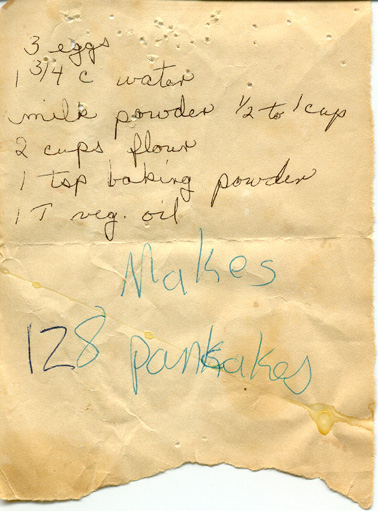 3 eggs
1 3/4 c water
milk powder 1/2 to 1 cup
2 cups flour
1 tsp baking powder
1 T veg. oil
Makes
128 pankakes